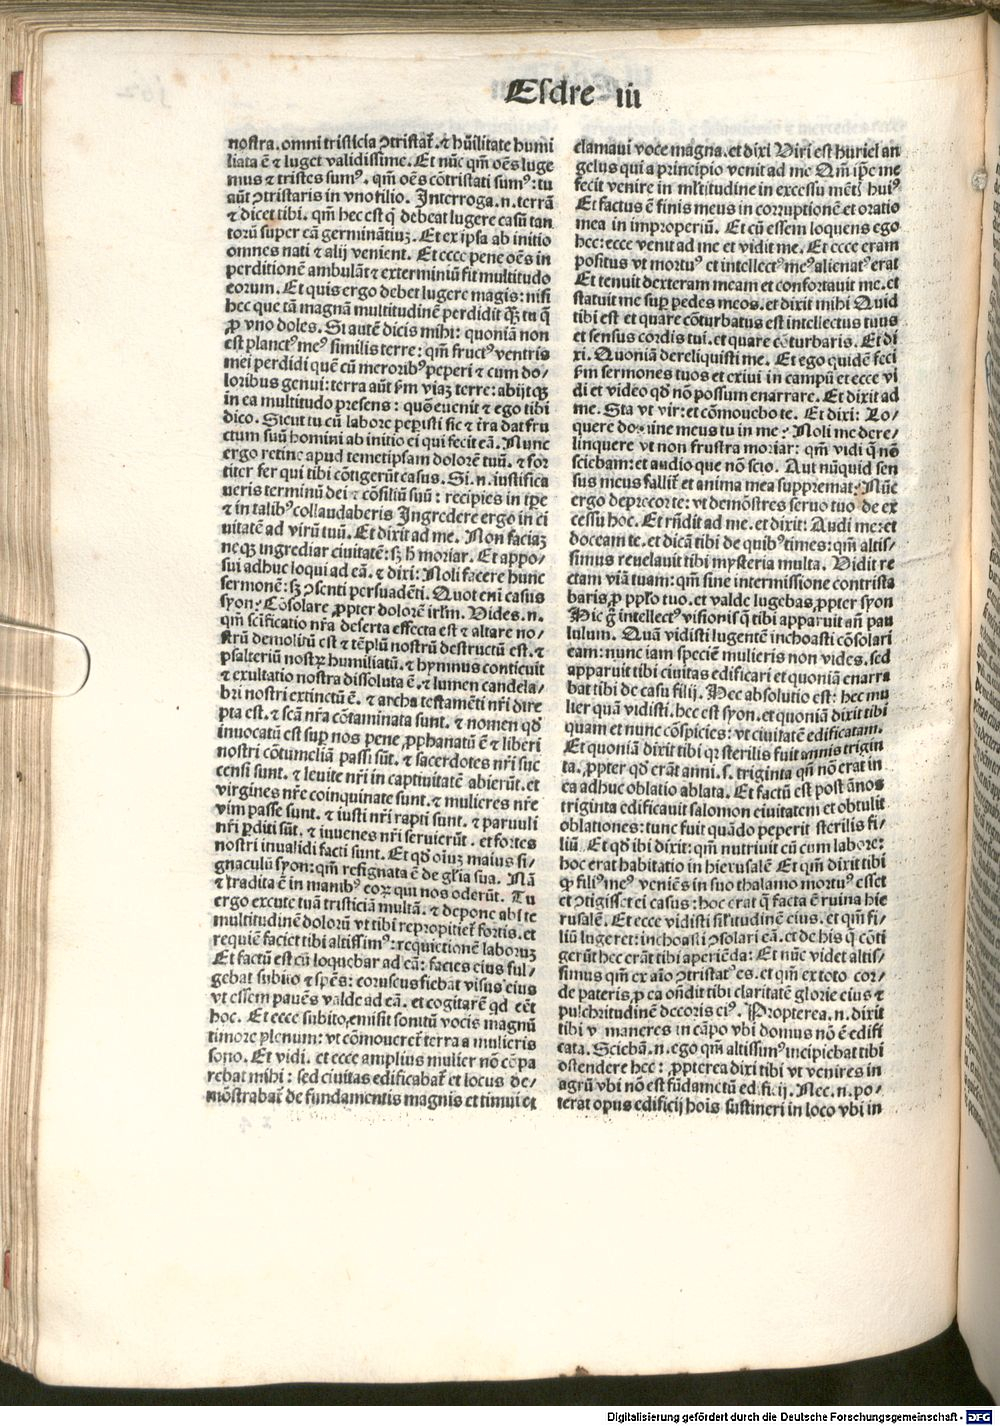 Esdre iii
nostra. omni tristicia ꝯtristat̃. ⁊ hũilitate humi
liata ẽ ⁊ luget validissime. Et nũc qm̃ oẽs luge
mus ⁊ tristes sumꝰ. qm̃ oẽs cõtristati sumꝰ: tu
aũt ꝯtristaris in vno filio. Interroga .n. terrã
⁊ dicet tibi. qm̃ hec est q̃ debeat lugere casũ tan
torũ super eã germinãtiuꝫ. Et ex ipsa ab initio
omnes nati ⁊ alij venient. Et ecce pene oẽs in
perditionẽ ambulãt ⁊ exterminiũ fit multitudo
eorum. Et quis ergo debet lugere magis: nisi
hec que tã magnã multitudinẽ perdidit qꝫ̃ tu q̃
ꝓ vno doles. Si autẽ dicis mihi: quoniã non
est planctꝰ meꝰ similis terre: qm̃ fructꝰ ventris
mei perdidi quẽ cũ meroribꝰ peperi ⁊ cum do/
loribus genui: terra aũt ẜm viaꝫ terre: abijtqꝫ
in ea multitudo presens: quõ euenit ⁊ ego tibi
dico. Sicut tu cũ labore peꝑisti sic ⁊ t̃ra dat fru
ctum suũ homini ab initio ei qui fecit eã. Nunc
ergo retine apud temetipsam dolorẽ tuũ. ⁊ for
titer fer qui tibi cõtigerũt casus. Si .n. iustifica
ueris terminũ dei ⁊ cõsiliũ suũ: recipies in tꝑe
⁊ in talibꝰ collaudaberis Ingredere ergo in ci
uitatẽ ad virũ tuũ. Et dixit ad me. Non faciaꝫ
neqꝫ ingrediar ciuitatẽ: sꝫ h̃ moriar. Et appo/
sui adhuc loqui ad eã. ⁊ dixi: Noli facere hunc
sermonẽ: sꝫ ꝯsenti persuadẽti. Quot eni casus
syon? Cõsolare ꝓpter dolorẽ irl̃m. Vides .n.
qm̃ scificatio nr̃a deserta effecta est ⁊ altare no/
strũ demolitũ est ⁊ tẽplũ nostrũ destructũ est. ⁊
psalteriũ nostꝝ humiliatũ. ⁊ hymnus conticuit
⁊ exultatio nostra dissoluta ẽ. ⁊ lumen candela/
bri nostri extinctũ ẽ. ⁊ archa testamẽti nr̃i dire
pta est. ⁊ scã nr̃a cõtaminata sunt. ⁊ nomen qd̃
inuocatũ est sup nos pene ꝓphanatũ ẽ ⁊ liberi
nostri cõtumeliã passi sũt. ⁊ sacerdotes nr̃i suc
censi sunt. ⁊ leuite nr̃i in captiuitatẽ abierũt. et
virgines nr̃e coinquinate sunt. ⁊ mulieres nr̃e
vim passe sunt. ⁊ iusti nr̃i rapti sunt. ⁊ paruuli
nr̃i ꝑditi sũt. ⁊ iuuenes nr̃i seruierũt. et fortes
nostri inualidi facti sunt. Et qd̃ oĩuꝫ maius si/
gnaculũ syon: qm̃ resignata ẽ de gl̃ia sua. Nã
⁊ tradita ẽ in manibꝰ eoꝝ qui nos oderũt. Tu
ergo excute tuã tristiciã multã. ⁊ depone abs te
multitudinẽ dolorũ vt tibi repropitiet̃ fortis. et
requiẽ faciet tibi altissimꝰ: requietionẽ laboruꝫ
Et factũ est cũ loquebar ad eã: facies eius ful/
gebat subito ⁊ spẽs: coruscus fiebat visus eius
vt essem pauẽs valde ad eã. et cogitarẽ qd eẽt
hoc. Et ecce subito, emisit sonitũ vocis magnũ
timore plenum: vt cõmoueret̃ terra a mulieris
sono. Et vidi. et ecce amplius mulier nõ cõpa
rebat mihi: sed ciuitas edificabat̃ et locus de/
mõstrabat̃ de fundamentis magnis et timui et
clamaui voce magna. et dixi Vbi est huriel an
gelus qui a principio venit ad me Qm̃ ip̃e me
fecit venire in ml̃titudine in excessu mẽt̃ huiꝰ
Et factus ẽ finis meus in corruptionẽ et oratio
mea in improperiũ. Et cũ essem loquens ego
hec: ecce venit ad me et vidit me. Et ecce eram
positus vt mortuꝰ et intellectꝰ meꝰ alienatꝰ erat
Et tenuit dexteram meam et confortauit me. et
statuit me suꝑ pedes meos. et dixit mihi Quid
tibi est et quare cõturbatus est intellectus tuus
et sensus cordis tui. et quare cõturbaris. Et di
xi. Quoniã dereliquisti me. Et ego quidẽ feci
ẜm sermones tuos et exiui in campũ et ecce vi
di et video qd̃ nõ possum enarrare. Et dixit ad
me. Sta vt vir: et cõmouebo te. Et dixi: Lo/
quere domine meus tu in me? Noli me dere/
linquere vt non frustra moriar: qm̃ vidi q̃ nõ
sciebam: et audio que nõ scio. Aut nũquid sen
sus meus fallit̃ et anima mea suppremat? Nũc
ergo deprecor te: vt demõstres seruo tuo de ex
cessu hoc. Et rñdit ad me. et dixit: Audi me: et
doceam te. et dicã tibi de quibꝰ times: qm̃ altis/
simus reuelauit tibi mysteria multa. Vidit re
ctam viã tuam: qm̃ sine intermissione contrista
baris ꝓ pp̃lo tuo. et valde lugebas ꝓpter syon
Hic g̃ intellectꝰ visionis q̃ tibi apparuit añ pau
lulum. Quã vidisti lugentẽ inchoasti cõsolari
eam: nunc iam speciẽ mulieris non vides. sed
apparuit tibi ciuitas edificari et quoniã enarra
bat tibi de casu filij. Hec absolutio est: hec mu
lier quã vidisti. hec est syon. et quoniã dixit tibi
quam et nunc cõspicies: vt ciuitatẽ edificatam.
Et quoniã dixit tibi qr sterilis fuit annis trigin
ta. ꝓpter qd̃ erãt anni .s. triginta qñ nõ erat in
ea adhuc oblatio ablata. Et factũ est post ãnos
triginta edificauit salomon ciuitatem et obtulit
oblationes: tunc fuit quãdo peperit sterilis fi/
liũ. Et qd̃ ibi dixit: qm̃ nutriuit cũ cum labore:
hoc erat habitatio in hierusalẽ Et qm̃ dixit tibi
ꝙ filiꝰ meꝰ veniẽs in suo thalamo mortuꝰ esset
et ꝯtigisset ei casus: hoc erat q̃ facta ẽ ruina hie
rusalẽ. Et ecce vidisti sil̃itudinẽ eius. et qm̃ fi/
liũ lugeret: inchoasti ꝯsolari eã. et de his q̃ cõti
gerũt hec erãt tibi aperiẽda: Et nũc videt altis/
simus qm̃ ex aĩo ꝯtristatꝰ es. et qm̃ ex toto cor/
de pateris ꝓ ea oñdit tibi claritatẽ glorie eius ⁊
pulchritudinẽ decoris eiꝰ. Propterea .n. dixit
tibi vt maneres in cãpo vbi domus nõ ẽ edifi
cata. Sciebã .n. ego qm̃ altissimꝰ incipiebat tibi
ostendere hec: ꝓpterea dixi tibi vt venires in
agrũ vbi nõ est fũdamẽtũ edificij. Nec .n. po/
terat opus edificij hois sustineri in loco vbi in
Digitalisierung gefördert durch die Deutsche Forschungsgemeinschaft - DFG